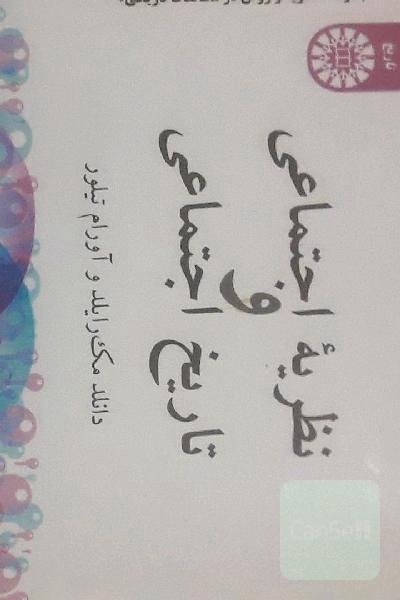 نظریهٔ اجتماعی
و
تاریخ اجتماعی
دانلد مک‌رایلد و آورام تیلور
تاریخ